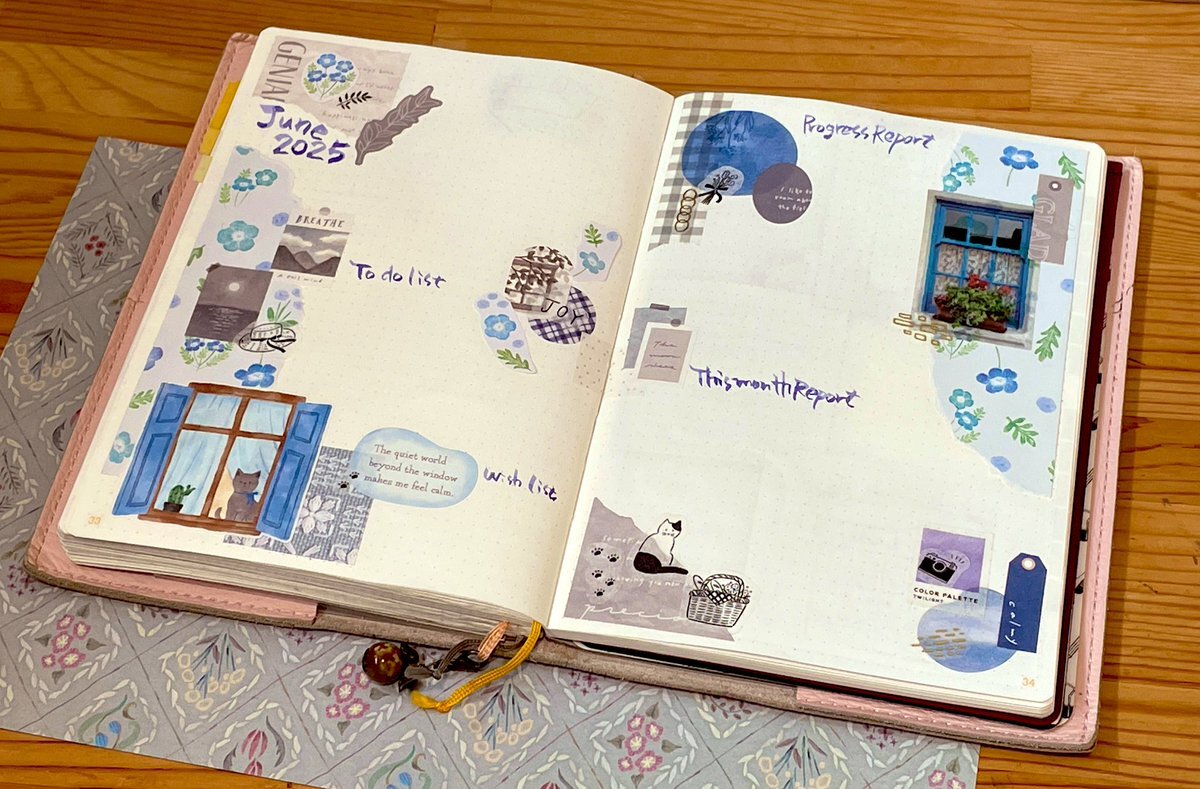 GENIAL
June
2025
BREATHE
To do list
JOY
The quiet world
beyond the window
makes me feel calm.
wish list
33
Progress Report
I like to
GLAD
This month Report
COLOR PALETTE
TWILIGHT
calmy
34